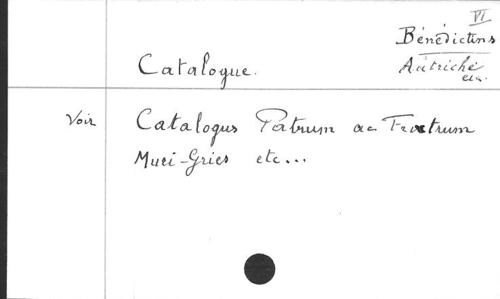 VI
Bénédictins
Autriche
etc.
Catalogue.
Voir Catalogus Patrum ac Fratrum
Muri-Gries etc...